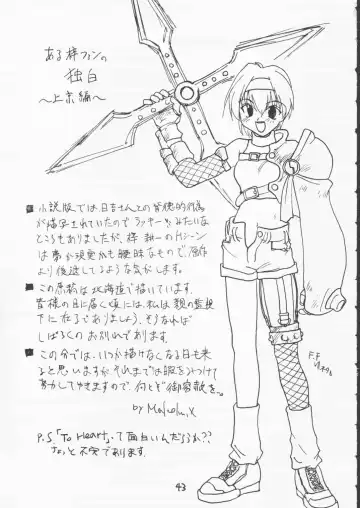 ある梓ファンの
独白
～上京編～
■小説版では日吉さんとの背徳的行為
が描写されていたのでラッキー!みたいな
ところもありましたが、梓 耕一のHシーン
は夢か現実かも曖昧なもので、原作
より後退してるような気がします。
■この原稿は北海道で描いています。
皆様の目に届く頃には、私は親の監視
下に在るでありましょう。そうなれば
しばらくのお別れであります。
■この分では、いつか描けなくなる日も来
ると思いますが、それまでは暇をみつけて
努力してゆきますので、何とぞ御容赦を。
by Malcolm.X
P.S「To Heart」って面白いんだろうか??
ちょっと不安であります。
F.F
43